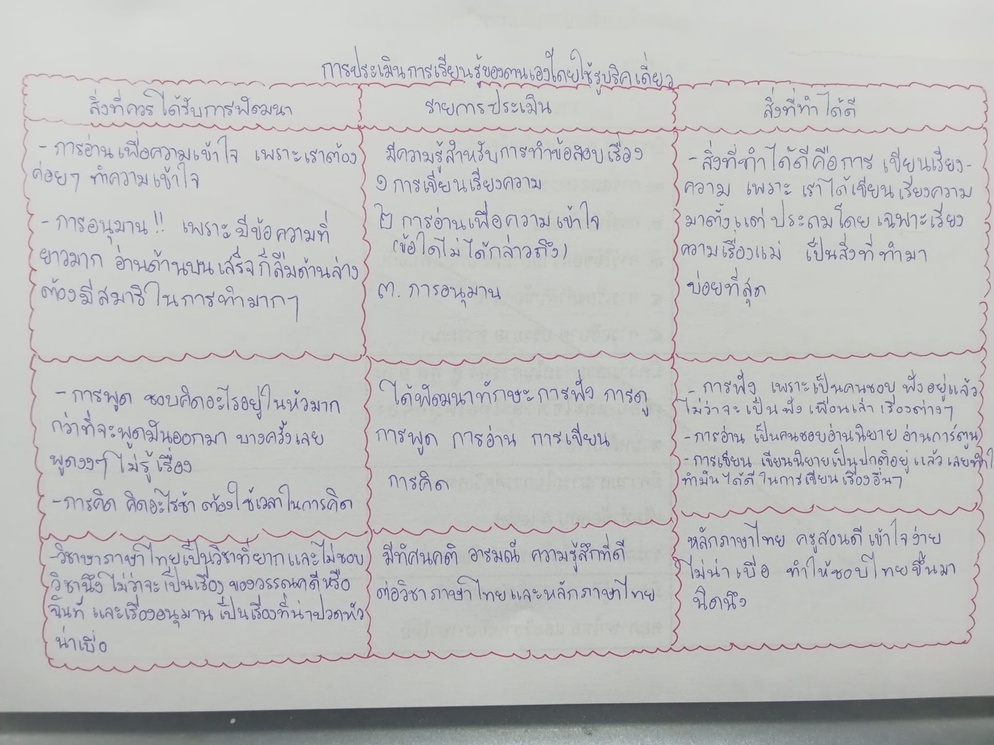 การประเมินการเรียนรู้ของตนเองโดยใช้รูบริคเดี่ยว
สิ่งที่ควรได้รับการพัฒนา
รายการประเมิน
สิ่งที่ทำได้ดี
- การอ่านเพื่อความเข้าใจ เพราะเราต้อง
ค่อยๆ ทำความเข้าใจ
- การอนุมาน!! เพราะมีข้อความที่
ยาวมาก อ่านด้านบนเสร็จก็ลืมด้านล่าง
ต้องมีสมาธิในการทำมากๆ
มีความรู้สำหรับการทำข้อสอบเรื่อง
๑ การเขียนเรียงความ
๒ การอ่านเพื่อความเข้าใจ
(ข้อใดไม่ได้กล่าวถึง)
๓. การอนุมาน
- สิ่งที่ทำได้ดีคือการ เขียนเรียง-
ความ เพราะ เราได้เขียนเรียงความ
มาตั้งแต่ประถมโดยเฉพาะเรียง
ความเรื่องแม่ เป็นสิ่งที่ทำมา
บ่อยที่สุด
- การพูด ชอบคิดอะไรอยู่ในหัวมาก
กว่าที่จะพูดมันออกมา บางครั้งเลย
พูดงงๆ ไม่รู้เรื่อง
- การคิด คิดอะไรช้า ต้องใช้เวลาในการคิด
ได้พัฒนาทักษะ การฟัง การด
การพูด การอ่าน การเขียน
การคิด
- การฟัง เพราะเป็นคนชอบฟังอยู่แล้ว
ไม่ว่าจะเป็นฟังเพื่อนเล่าเรื่องต่างๆ
- การอ่าน เป็นคนชอบอ่านนิยาย อ่านการ์ตูน
- การเขียน เขียนนิยายเป็นปกติอยู่แล้ว เลยทำให้
ทำมันได้ดีในการเขียนเรื่องอื่นๆ
- วิชาภาษาไทยเป็นวิชาที่ยากและไม่ชอบ
วิชานึง ไม่ว่าจะเป็นเรื่องของวรรณคดีหรือ
ฉันท์ และเรื่องอนุมาน เป็นเรื่องที่น่าปวดหัว
น่าเบื่อ
มีทัศนคติ อารมณ์ ความรู้สึกที่ดี
ต่อวิชาภาษาไทยและหลักภาษาไทย
หลักภาษาไทย ครูสอนดี เข้าใจง่าย
ไม่น่าเบื่อ ทำให้ชอบไทยขึ้นมา
นิดนึง